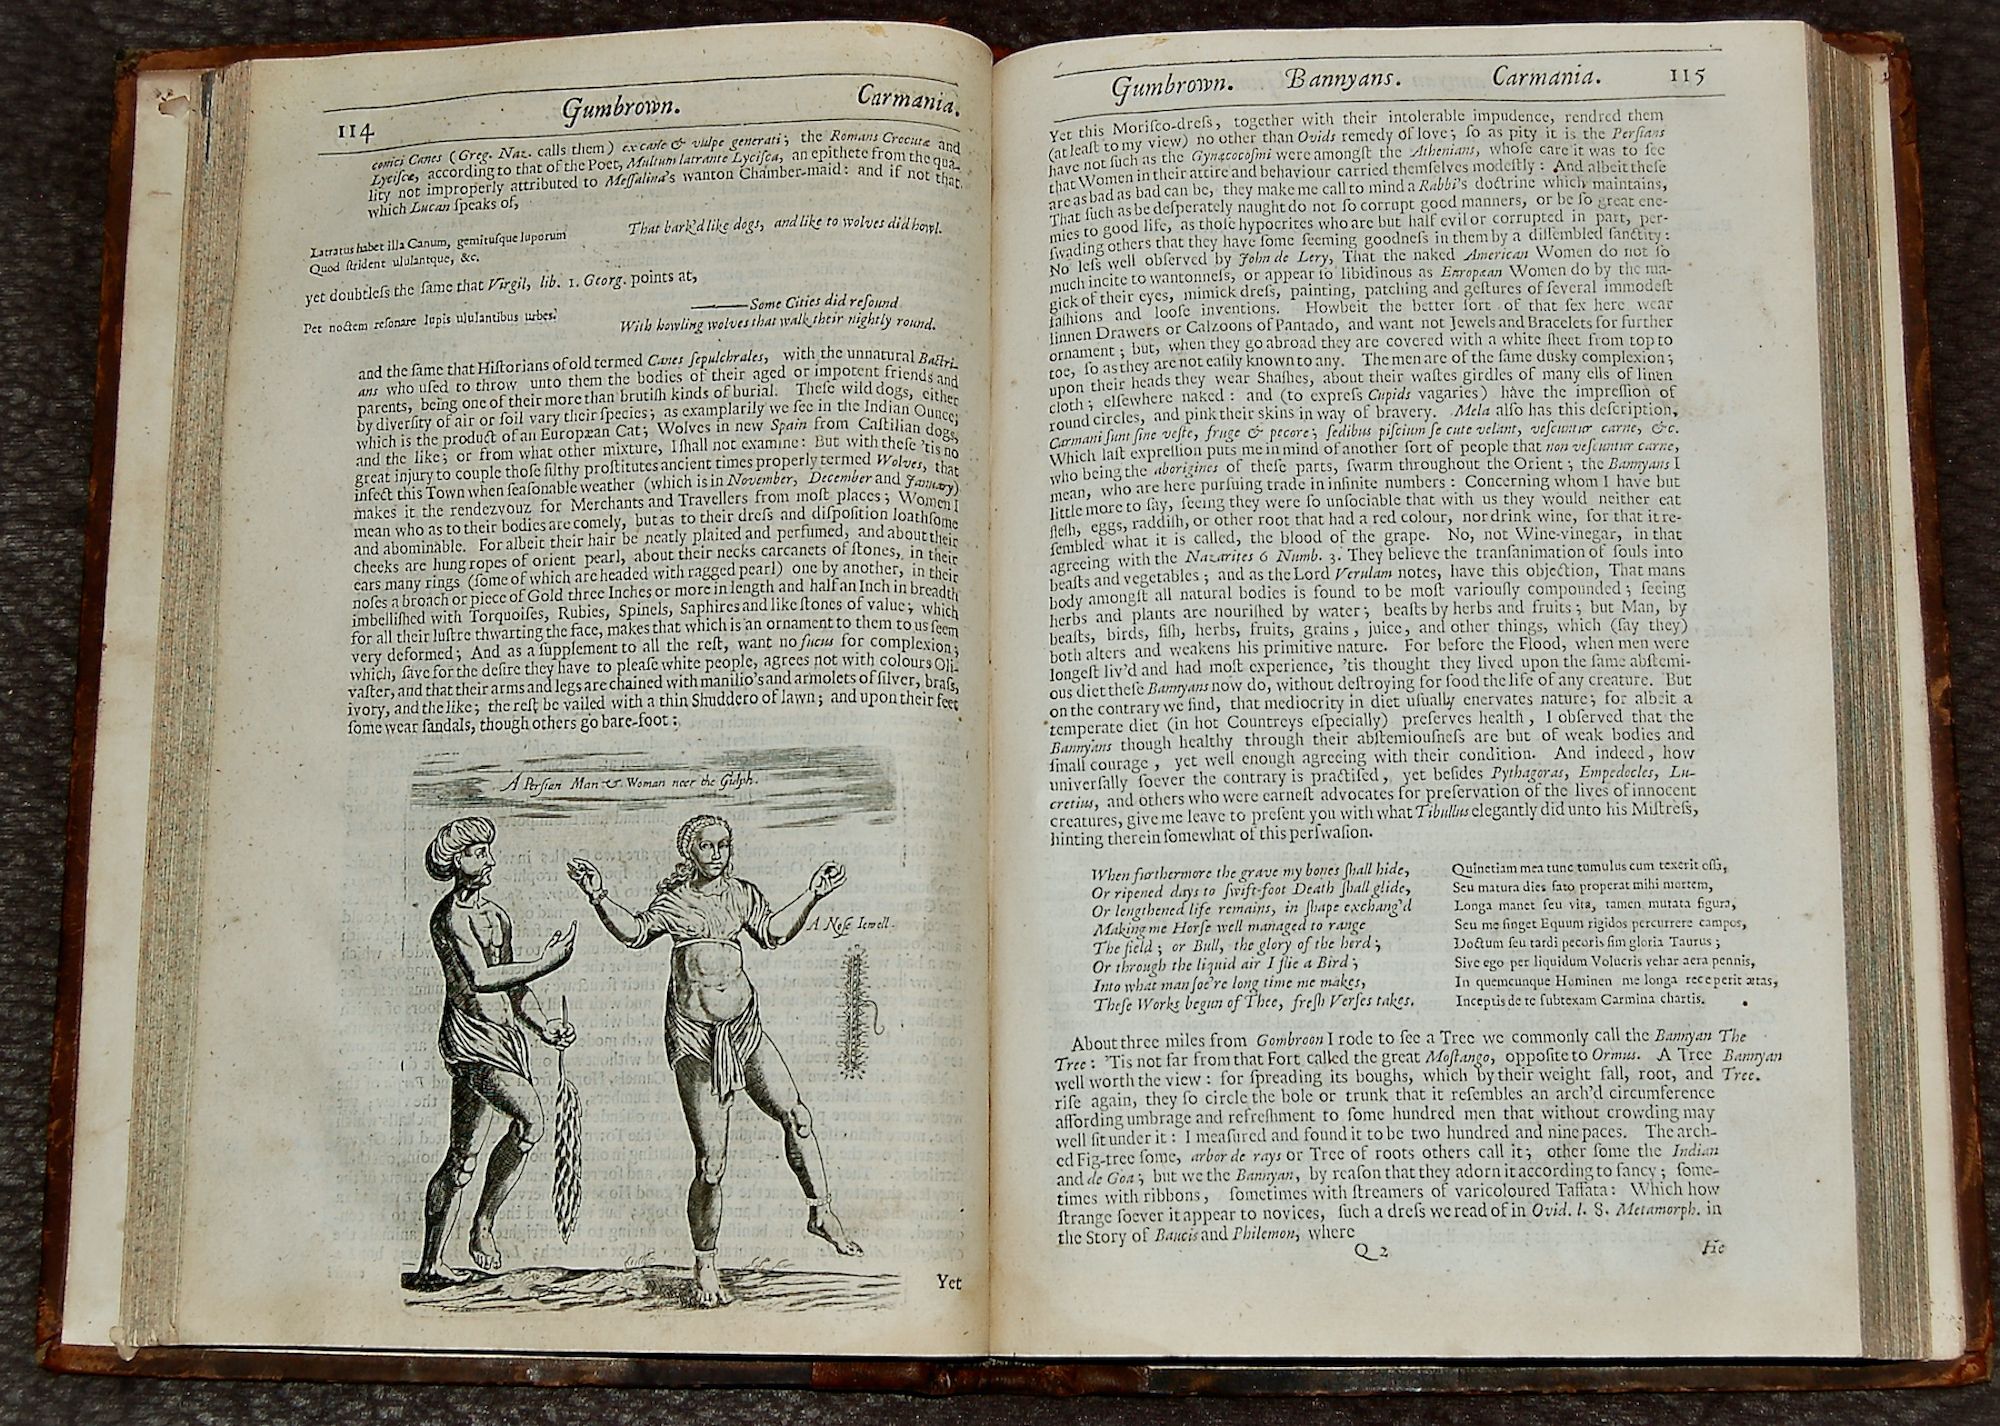 114 Gumbrown. Carmania.
conici Canes (Greg. Naz. calls them) ex cane & vulpe generati; the Romans Crocutæ and
Lycisca, according to that of the Poet, Multum latrante Lycisca, an epithete from the qua-
lity not improperly attributed to Messalina's wanton Chamber-maid: and if not that,
which Lucan ſpeaks of,
Latratus habet illa Canum, gemituſque luporum
Quod ſtrident ululantque, &c.
That bark'd like dogs, and like to wolves did howl.
yet doubtleſs the ſame that Virgil, lib. 1. Georg. points at,
Pet noctem reſonare lupis ululantibus urbes.
Some Cities did reſound
With howling wolves that walk their nightly round.
and the ſame that Hiſtorians of old termed Canes ſepulchrales, with the unnatural Bactri-
ans who uſed to throw unto them the bodies of their aged or impotent friends and
parents, being one of their more than brutiſh kinds of burial. Theſe wild dogs, either
by diverſity of air or ſoil vary their ſpecies; as examplarily we ſee in the Indian Ounce;
which is the product of an Europæan Cat; Wolves in new Spain from Caſtilian dogs,
and the like; or from what other mixture, I ſhall not examine: But with theſe 'tis no
great injury to couple thoſe filthy proſtitutes ancient times properly termed Wolves, that
infect this Town when ſeaſonable weather (which is in November, December and January)
makes it the rendezvouz for Merchants and Travellers from moſt places; Women I
mean who as to their bodies are comely, but as to their dreſs and diſpoſition loathſome
and abominable. For albeit their hair be neatly plaited and perfumed, and about their
cheeks are hung ropes of orient pearl, about their necks carcanets of ſtones, in their
ears many rings (ſome of which are headed with ragged pearl) one by another, in their
noſes a broach or piece of Gold three Inches or more in length and half an Inch in breadth
imbelliſhed with Torquoiſes, Rubies, Spinels, Saphires and like ſtones of value; which
for all their luſtre thwarting the face, makes that which is an ornament to them to us ſeem
very deformed; And as a ſupplement to all the reſt, want no fucus for complexion;
which, ſave for the deſire they have to pleaſe white people, agrees not with colours Oli-
vaſter, and that their arms and legs are chained with manilio's and armolets of ſilver, braſs,
ivory, and the like; the reſt be vailed with a thin Shuddero of lawn; and upon their feet
ſome wear ſandals, though others go bare-foot:
A Perſian Man & Woman neer the Gulph.
A Noſe Iewell.
Yet
Gumbrown. Bannyans. Carmania. 115
Yet this Moriſco-dreſs, together with their intolerable impudence, rendred them
(at leaſt to my view) no other than Ovids remedy of love; ſo as pity it is the Perſians
have not ſuch as the Gynæcocoſmi were amongſt the Athenians, whoſe care it was to ſee
that Women in their attire and behaviour carried themſelves modeſtly: And albeit theſe
are as bad as bad can be, they make me call to mind a Rabbi's doctrine which maintains,
That ſuch as be deſperately naught do not ſo corrupt good manners, or be ſo great ene-
mies to good life, as thoſe hypocrites who are but half evil or corrupted in part, per-
ſwading others that they have ſome ſeeming goodneſs in them by a diſſembled ſanctity:
No leſs well obſerved by John de Lery, That the naked American Women do not ſo
much incite to wantonneſs, or appear ſo libidinous as Europæan Women do by the ma-
gick of their eyes, mimick dreſs, painting, patching and geſtures of ſeveral immodeſt
faſhions and looſe inventions. Howbeit the better ſort of that ſex here wear
linnen Drawers or Calzoons of Pantado, and want not Jewels and Bracelets for further
ornament; but, when they go abroad they are covered with a white ſheet from top to
toe, ſo as they are not eaſily known to any. The men are of the ſame dusky complexion;
upon their heads they wear Shaſhes, about their waſtes girdles of many ells of linen
cloth; elſewhere naked: and (to expreſs Cupids vagaries) have the impreſſion of
round circles, and pink their skins in way of bravery. Mela alſo has this deſcription,
Carmani ſunt ſine veſte, fruge & pecore; ſedibus piſcium ſe cute velant, veſcuntur carne, &c.
Which laſt expreſſion puts me in mind of another ſort of people that non veſcuntur carne,
who being the aborigines of theſe parts, ſwarm throughout the Orient; the Bannyans I
mean, who are here purſuing trade in infinite numbers: Concerning whom I have but
little more to ſay, ſeeing they were ſo unſociable that with us they would neither eat
fleſh, eggs, raddiſh, or other root that had a red colour, nor drink wine, for that it re-
ſembled what it is called, the blood of the grape. No, not Wine-vinegar, in that
agreeing with the Nazarites 6 Numb. 3. They believe the tranſanimation of ſouls into
beaſts and vegetables; and as the Lord Verulam notes, have this objection, That mans
body amongſt all natural bodies is found to be moſt variouſly compounded; ſeeing
herbs and plants are nouriſhed by water; beaſts by herbs and fruits; but Man, by
beaſts, birds, fiſh, herbs, fruits, grains, juice, and other things, which (ſay they)
both alters and weakens his primitive nature. For before the Flood, when men were
longeſt liv'd and had moſt experience, 'tis thought they lived upon the ſame abſtemi-
ous diet theſe Bannyans now do, without deſtroying for food the life of any creature. But
on the contrary we find, that mediocrity in diet uſually enervates nature; for albeit a
temperate diet (in hot Countreys eſpecially) preſerves health, I obſerved that the
Bannyans though healthy through their abſtemiouſneſs are but of weak bodies and
ſmall courage, yet well enough agreeing with their condition. And indeed, how
univerſally ſoever the contrary is practiſed, yet beſides Pythagoras, Empedocles, Lu-
cretius, and others who were earneſt advocates for preſervation of the lives of innocent
creatures, give me leave to preſent you with what Tibullus elegantly did unto his Miſtreſs,
hinting therein ſomewhat of this perſwaſion.
When furthermore the grave my bones ſhall hide,
Or ripened days to ſwift-foot Death ſhall glide,
Or lengthened life remains, in ſhape exchang'd
Making me Horſe well managed to range
The field; or Bull, the glory of the herd;
Or through the liquid air I flie a Bird;
Into what man ſoe're long time me makes,
Theſe Works begun of Thee, freſh Verſes takes.
Quinetiam mea tunc tumulus cum texerit oſſa,
Seu matura dies fato properat mihi mortem,
Longa manet ſeu vita, tamen mutata figura,
Seu me finget Equum rigidos percurrere campos,
Doctum ſeu tardi pecoris ſim gloria Taurus;
Sive ego per liquidum Volucris vehar aera pennis,
In quemcunque Hominen me longa receperit ætas,
Inceptis de te ſubtexam Carmina chartis.
About three miles from Gombroon I rode to ſee a Tree we commonly call the Bannyan
Tree: 'Tis not far from that Fort called the great Moſtango, oppoſite to Ormus. A Tree
well worth the view: for ſpreading its boughs, which by their weight fall, root, and
riſe again, they ſo circle the bole or trunk that it reſembles an arch'd circumference
affording umbrage and refreſhment to ſome hundred men that without crowding may
well ſit under it: I meaſured and found it to be two hundred and nine paces. The arch-
ed Fig-tree ſome, arbor de rays or Tree of roots others call it; other ſome the Indian
and de Goa; but we the Bannyan, by reaſon that they adorn it according to fancy; ſome-
times with ribbons, ſometimes with ſtreamers of varicoloured Taffata: Which how
ſtrange ſoever it appear to novices, ſuch a dreſs we read of in Ovid. l. 8. Metamorph. in
the Story of Baucis and Philemon, where
The
Bannyan
Tree.
Q 2 He